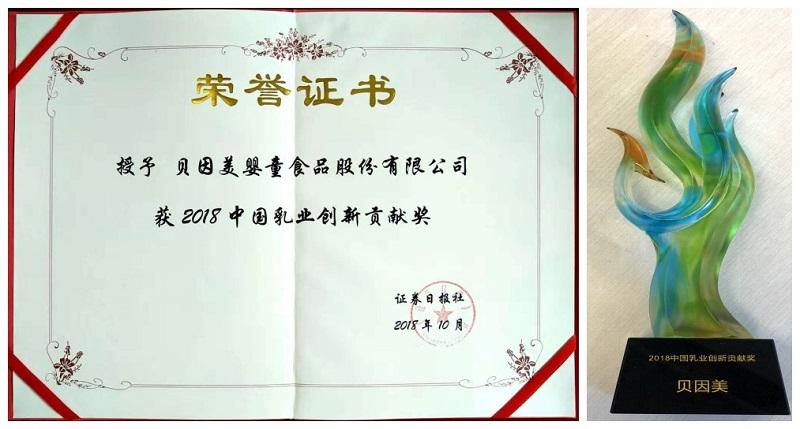 荣誉证书
授予 贝因美婴童食品股份有限公司
获 2018 中国乳业创新贡献奖
证券日报社
2018 年 10 月
2018中国乳业创新贡献奖
贝因美